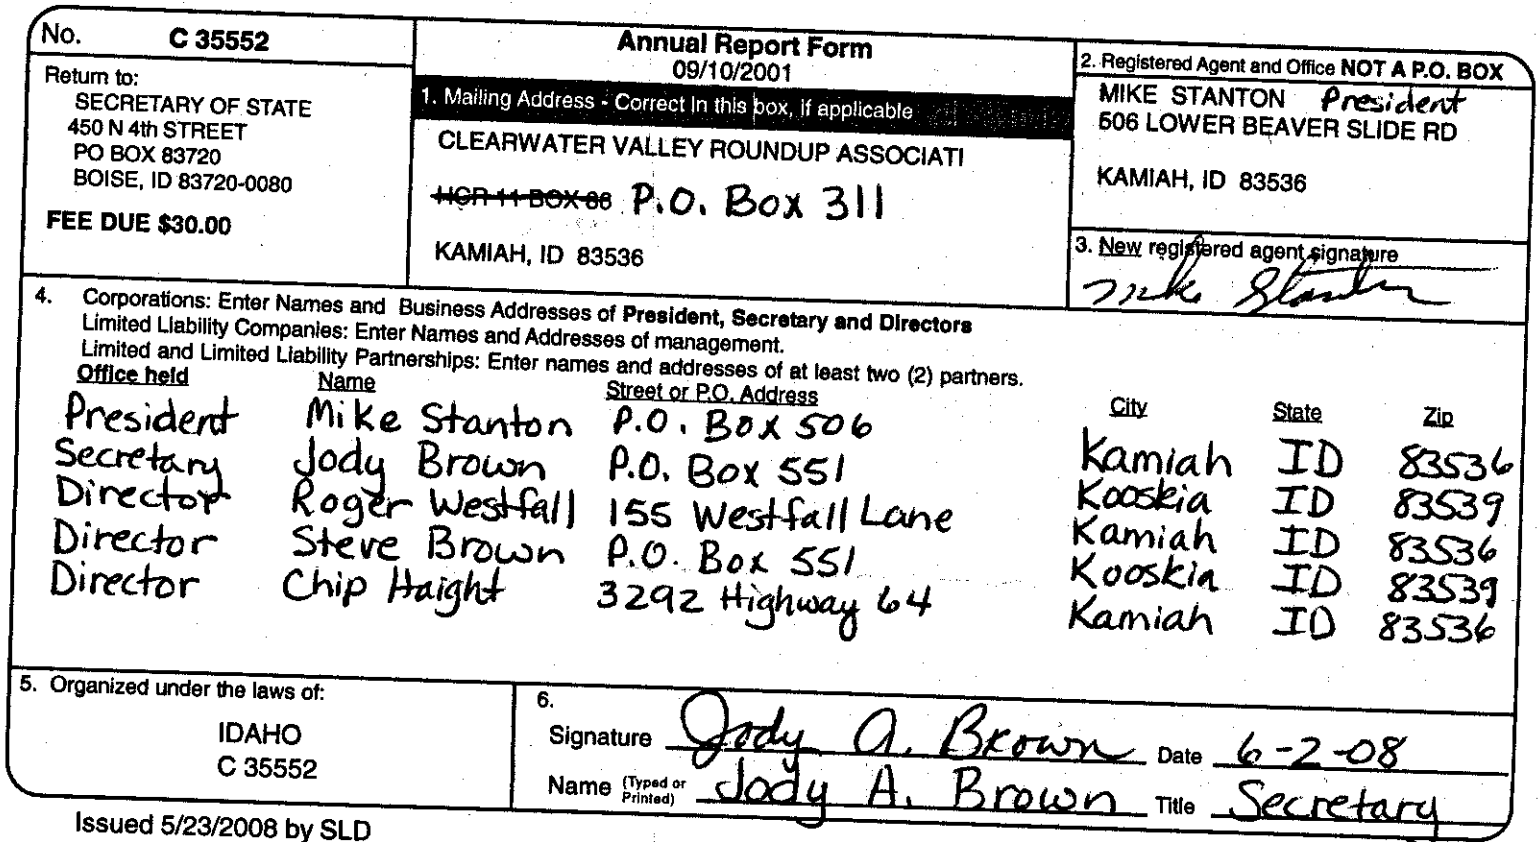 No. C 35552
Return to:
SECRETARY OF STATE
450 N 4th STREET
PO BOX 83720
BOISE, ID 83720-0080
FEE DUE $30.00
Annual Report Form
09/10/2001
1. Mailing Address - Correct in this box, if applicable
CLEARWATER VALLEY ROUNDUP ASSOCIATI
HCR 11 BOX 86 P.O. Box 311
KAMIAH, ID 83536
2. Registered Agent and Office NOT A P.O. BOX
MIKE STANTON President
506 LOWER BEAVER SLIDE RD
KAMIAH, ID 83536
3. New registered agent signature
Mike Stanton
4. Corporations: Enter Names and Business Addresses of President, Secretary and Directors
Limited Liability Companies: Enter Names and Addresses of management.
Limited and Limited Liability Partnerships: Enter names and addresses of at least two (2) partners.
Office held Name Street or P.O. Address City State Zip
President Mike Stanton P.O. Box 506 Kamiah ID 83536
Secretary Jody Brown P.O. Box 551 Kooskia ID 83539
Director Roger Westfall 155 Westfall Lane Kamiah ID 83536
Director Steve Brown P.O. Box 551 Kooskia ID 83539
Director Chip Haight 3292 Highway 64 Kamiah ID 83536
5. Organized under the laws of:
IDAHO
C 35552
6.
Signature Jody A. Brown Date 6-2-08
Name (Typed or Printed) Jody A. Brown Title Secretary
Issued 5/23/2008 by SLD